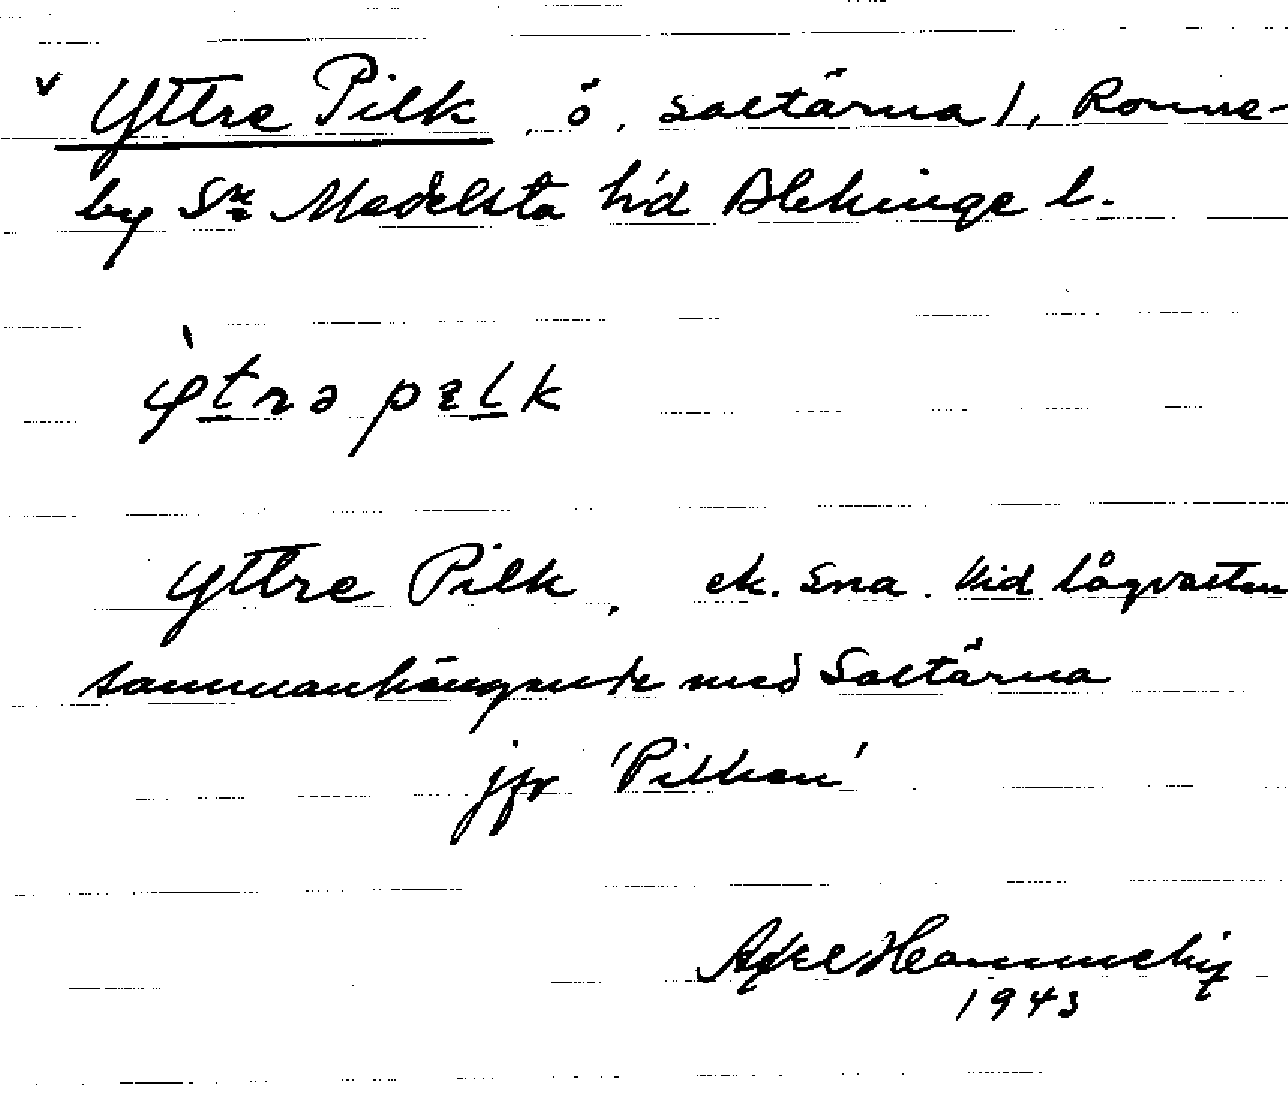 v Yttre Pilk, ö, saltärna 1, Ronne-
by Sn Medelsta hd Blekinge l.
Yttre Pilk, ek. sna. Vid lågvatten
sammanhängande med Saltärna
jfr 'Pilken'
Axel
1943